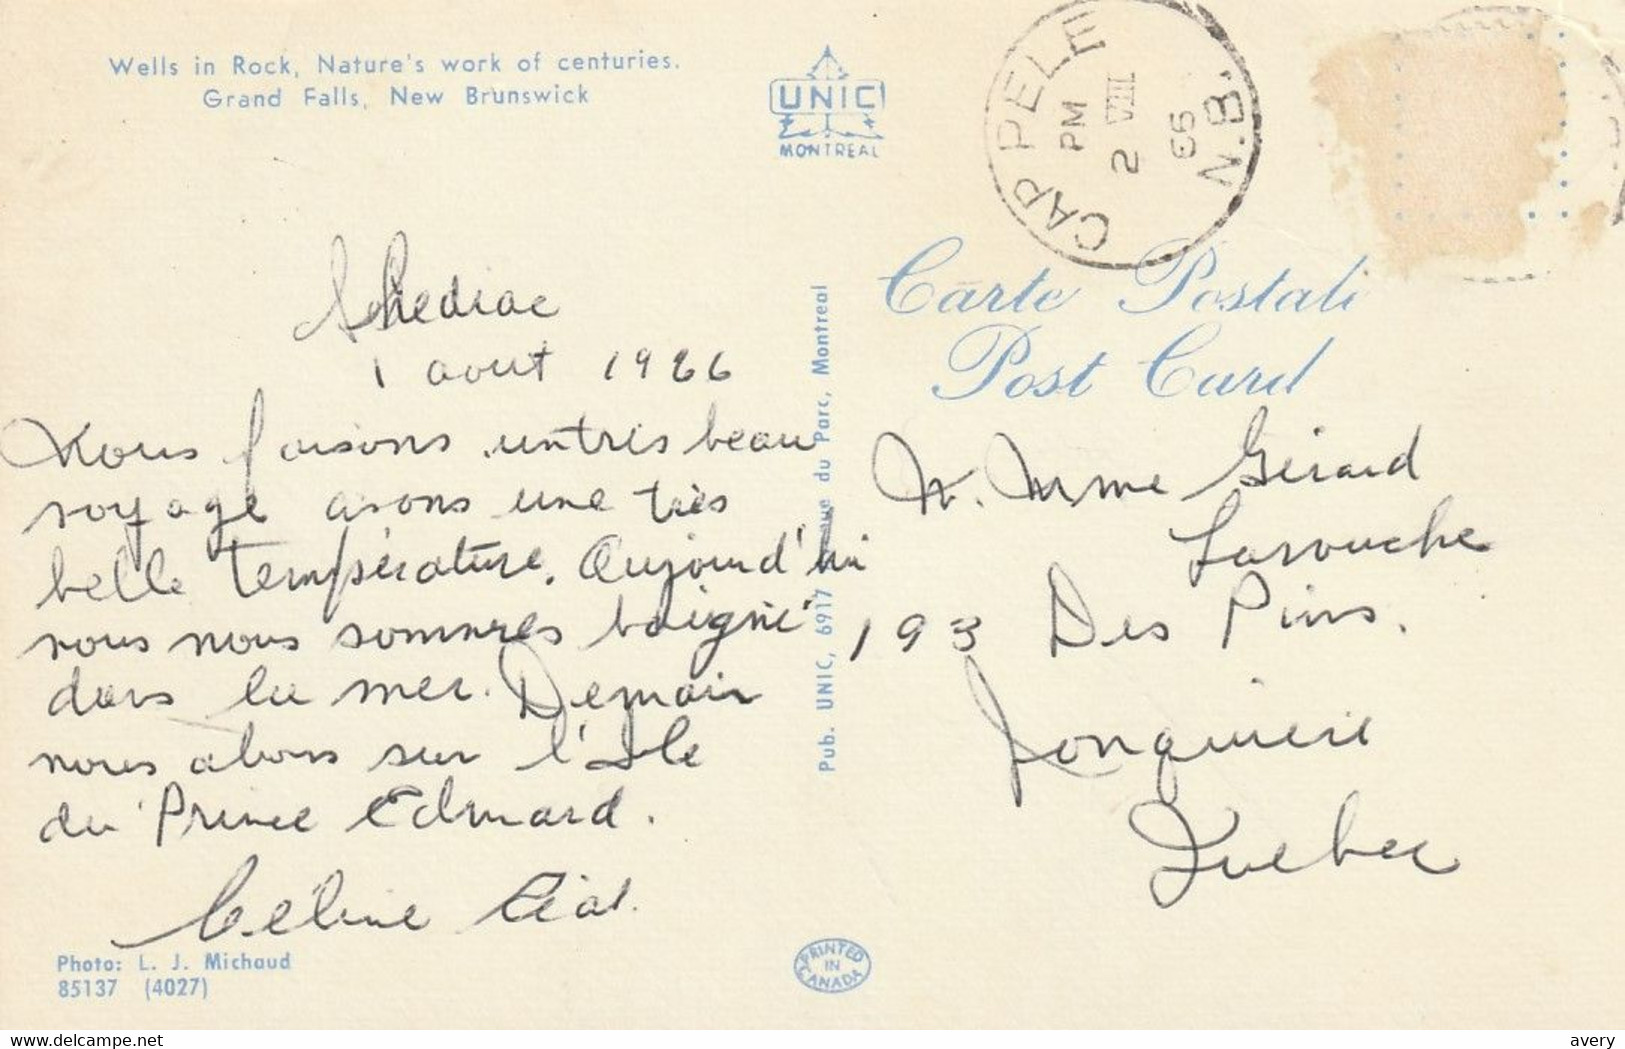 Wells in Rock, Nature's work of centuries.
Grand Falls, New Brunswick
UNIC
MONTREAL
CAP PELE
PM
2 VIII
66
N.B.
Carte Postale
Post Card
Shediac
1 aout 1966
Nous faisons un très beau
voyage avons une très
belle température. Aujourd'hui
nous nous sommes baigné
dans la mer. Demain
nous allons sur l'Ile
du Prince Edward.
Céline Réal.
M. Mme Gérard
Larouche
193 Des Pins.
Jonquiere
Quebec
Pub. UNIC, 6917 du Parc, Montreal
Photo: L. J. Michaud
85137 (4027)
PRINTED
IN
CANADA
www.delcampe.net
avery